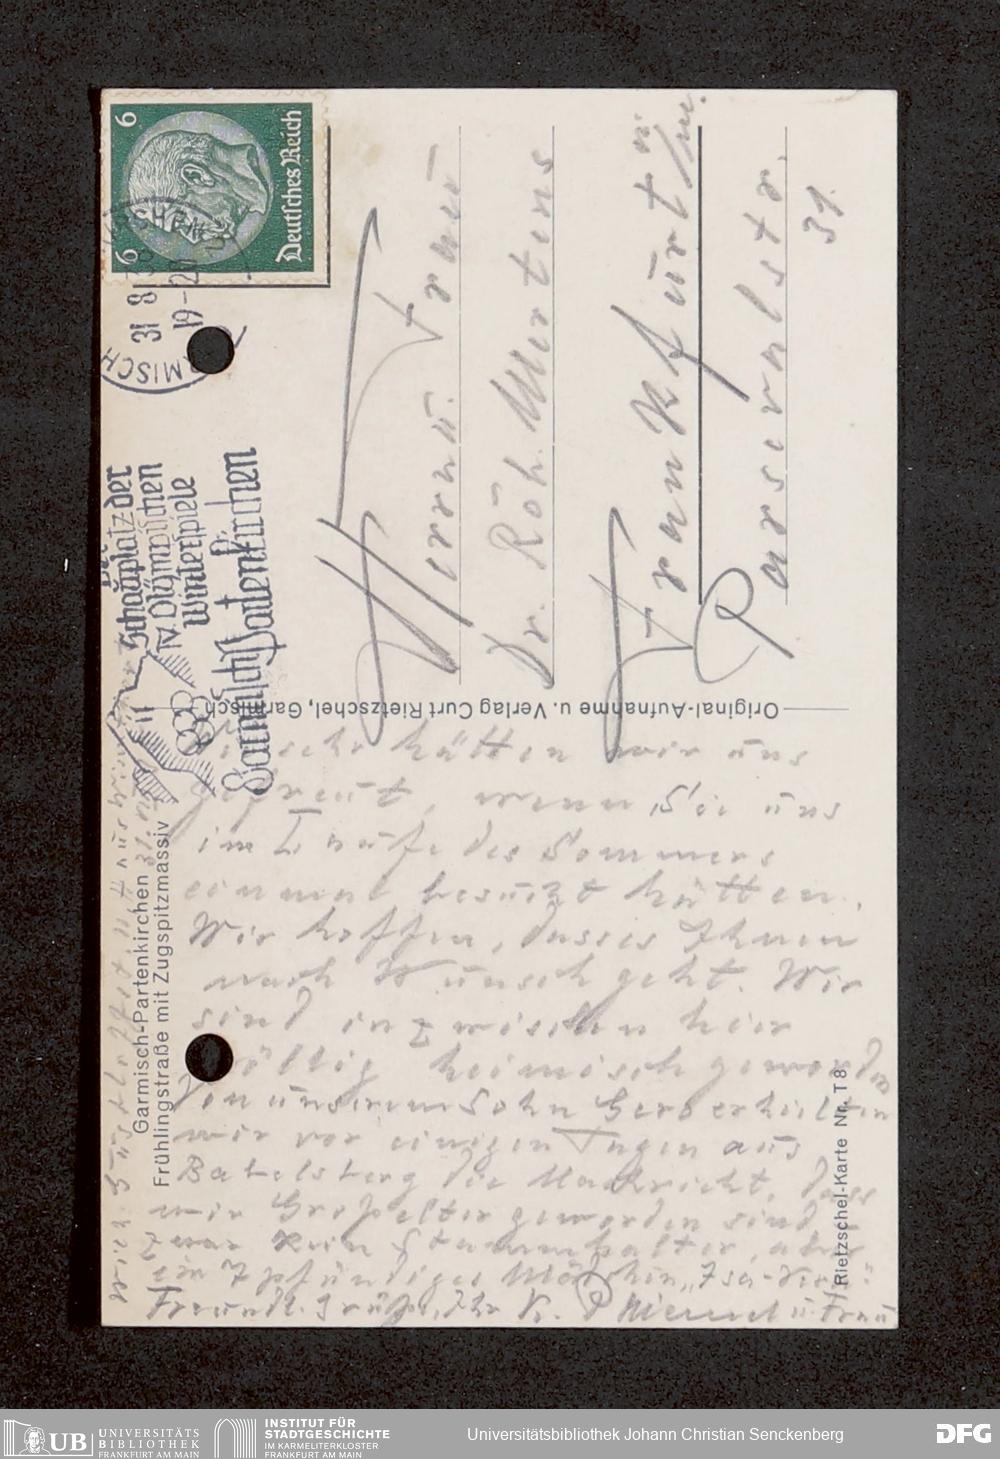 6
6
Deutsches Reich
GARMISCH
31 8
19-20
Der
Schauplatz der
IV. Olympischen
Winterspiele
Garmisch-Partenkirchen
Herrn u. Frau
Dr. Röh. Mertens
Frankfurt a/M.
Parsevalstr.
31.
Original-Aufnahme u. Verlag Curt Rietzschel, Garmisch
Garmisch-Partenkirchen
Frühlingstraße mit Zugspitzmassiv
Rietzschel-Karte Nr. T 8
sehr hätten wir uns
gefreut, wenn Sie uns
im Laufe des Sommers
einmal besucht hätten.
Wir hoffen, dass es Ihnen
nach Wunsch geht. Wir
sind inzwischen hier
völlig heimisch geworden
Von unserem Sohn Gero erhielten
wir vor einigen Tagen aus
Babelsberg die Nachricht, dass
wir Großelter geworden sind
zwar kein Stammhalter, aber
ein 7 pfündiges Mädchen
Freundl. Grüße, Ihr K. u. Frau
UB UNIVERSITÄTS
BIBLIOTHEK
FRANKFURT AM MAIN
INSTITUT FÜR
STADTGESCHICHTE
IM KARMELITERKLOSTER
FRANKFURT AM MAIN
Universitätsbibliothek Johann Christian Senckenberg
DFG